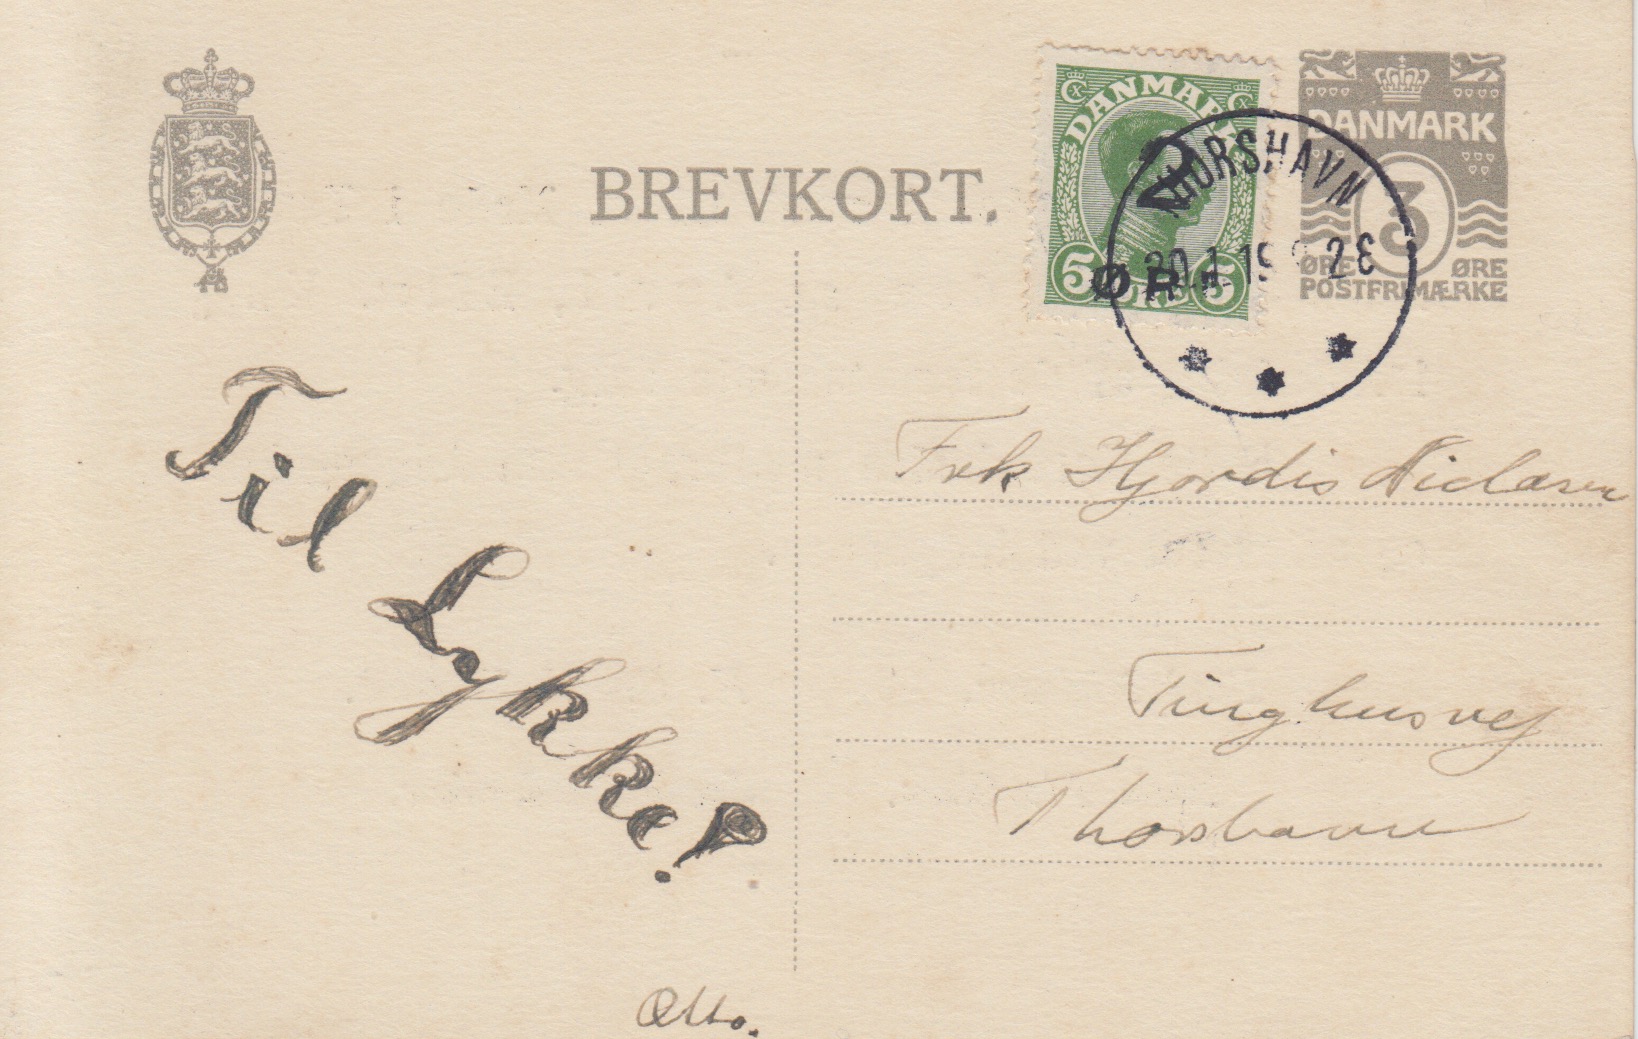 BREVKORT.
DANMARK
2
5 ØRE 5
ØRE
DANMARK
3
ØRE ØRE
POSTFRIMÆRKE
THORSHAVN
20.1.19
Til Lykke!
Otto.
Frk Hjordis
Tinghusvej
Thorshavn